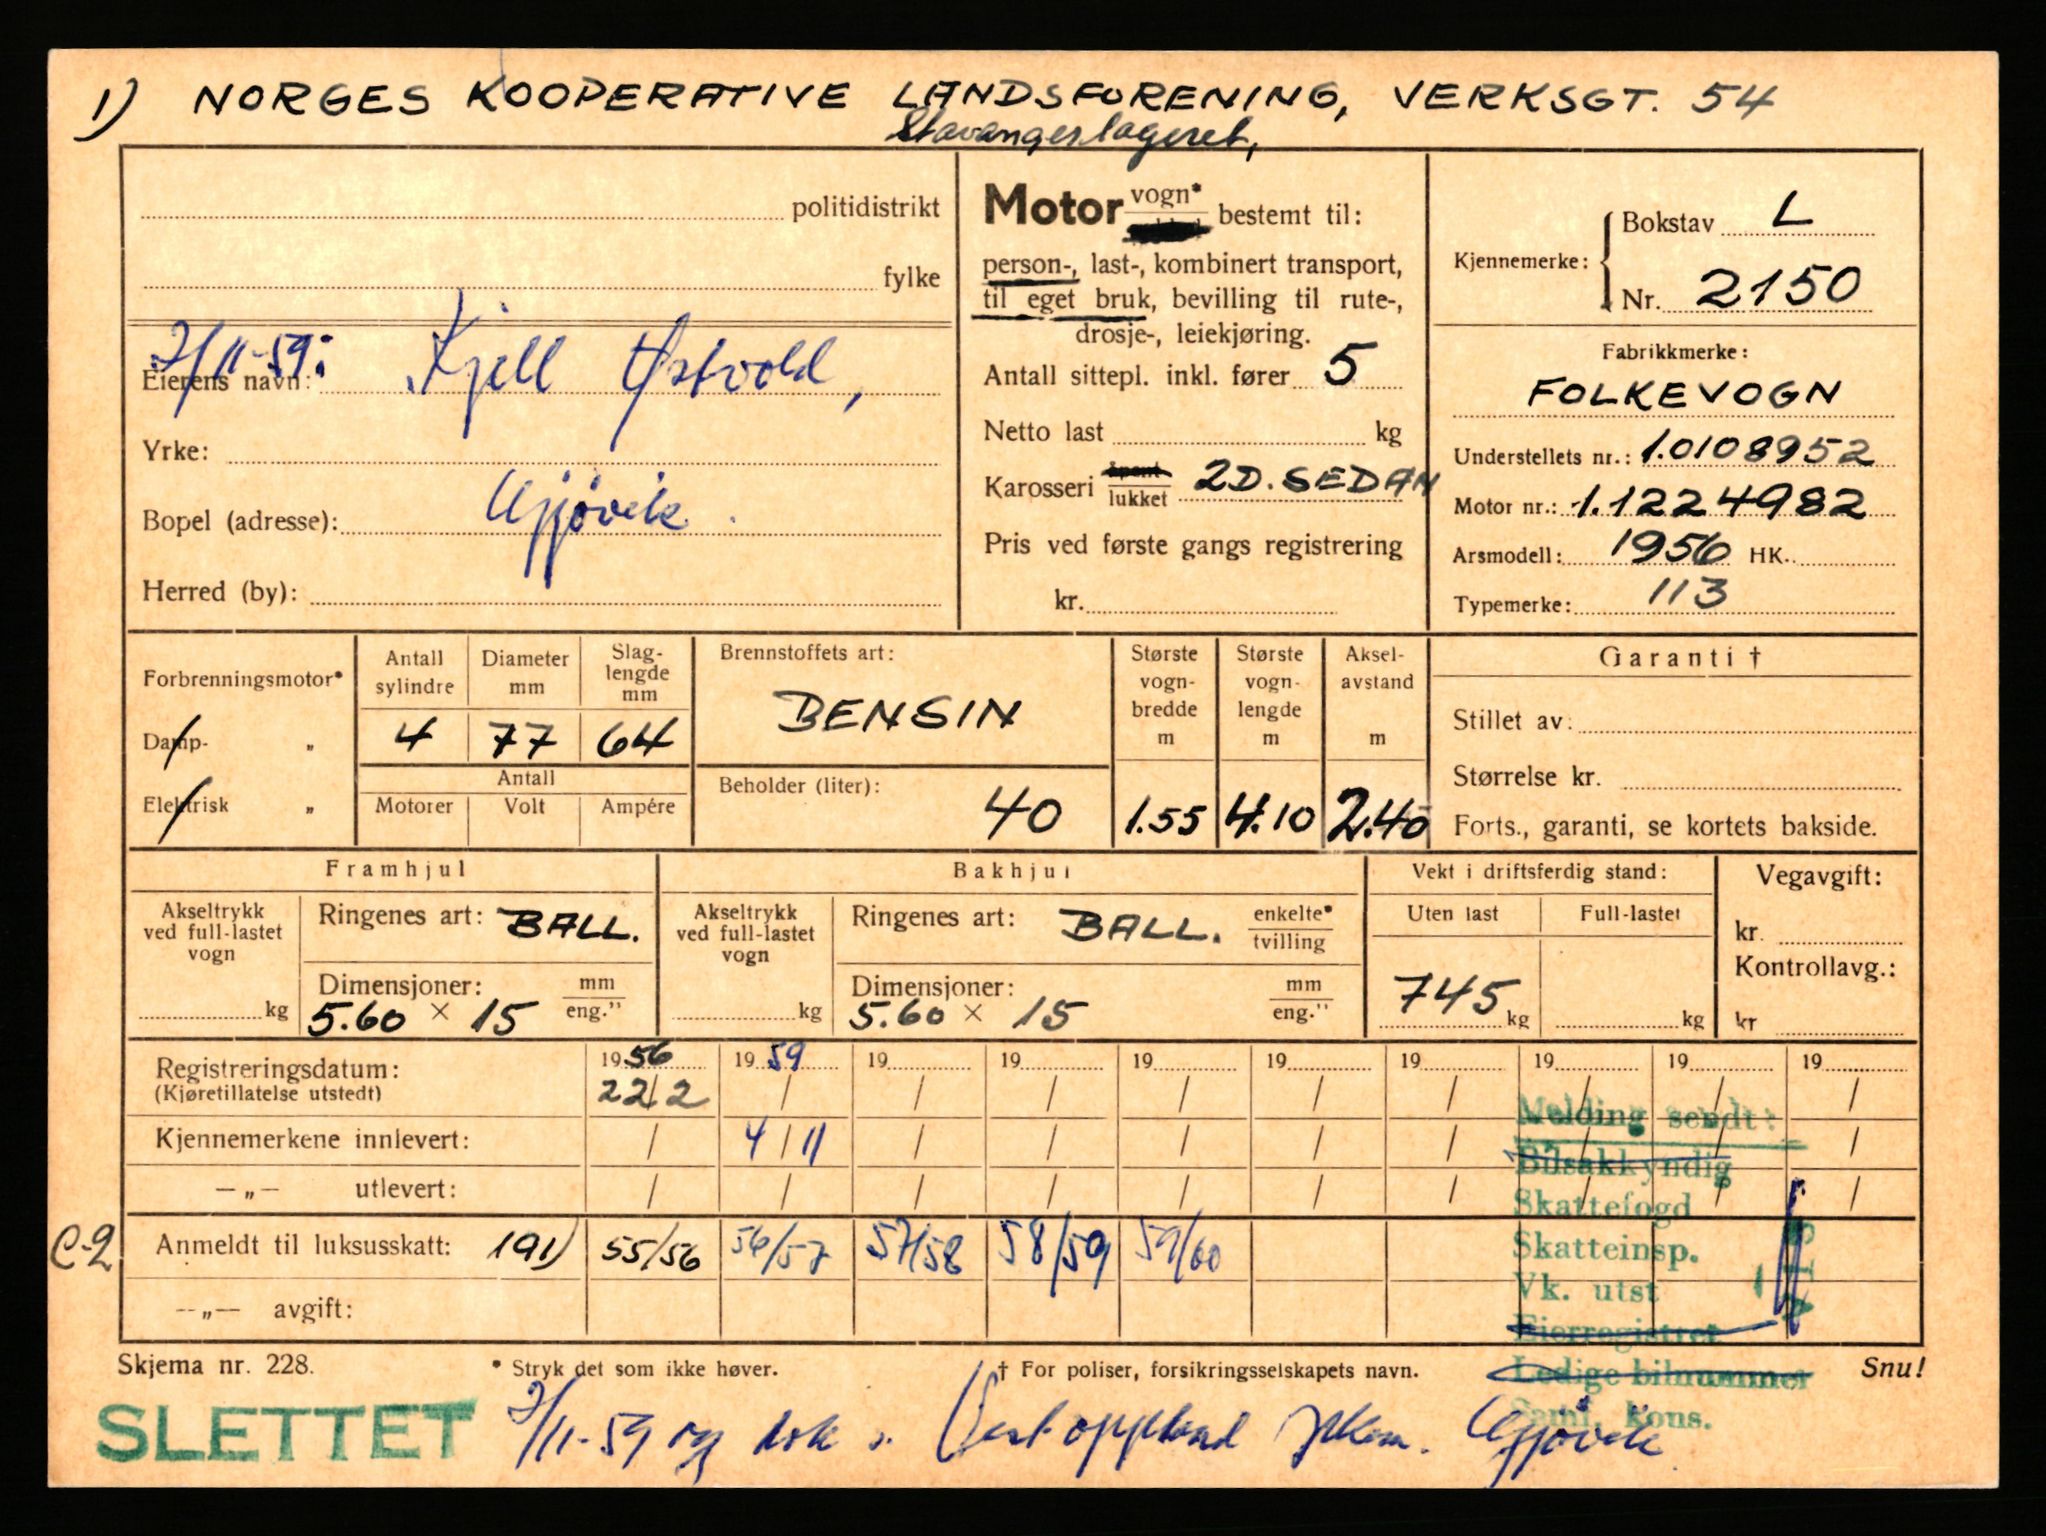 1) NORGES KOOPERATIVE LANDSFORENING, VERKSGT. 54
Stavangerlageret,
politidistrikt
fylke
7/11-59: Kjell Østvold,
Eierens navn:
Yrke:
Bopel (adresse): Gjøvik
Herred (by):
Motor vogn* bestemt til:
person-, last-, kombinert transport,
til eget bruk, bevilling til rute-,
drosje-, leiekjøring.
Antall sittepl. inkl. fører 5
Netto last kg
Karosseri åpent lukket 2D. SEDAN
Pris ved første gangs registrering
kr.
Kjennemerke: Bokstav L
Nr. 2150
Fabrikkmerke:
FOLKEVOGN
Understellets nr.: 1.0108952
Motor nr.: 1.1224982
Arsmodell: 1956 HK.
Typemerke: 113
Forbrenningsmotor*
Damp- „
Elektrisk „
Antall sylindre
Diameter mm
Slag-lengde mm
4 77 64
Antall
Motorer Volt Ampére
Brennstoffets art:
BENSIN
Beholder (liter):
40
Største vogn-bredde m
1.55
Største vogn-lengde m
4.10
Aksel-avstand m
2.40
Garanti †
Stillet av:
Størrelse kr.
Forts., garanti, se kortets bakside.
Framhjul
Akseltrykk ved full-lastet vogn
kg
Ringenes art: BALL.
Dimensjoner: mm eng."
5.60 × 15
Bakhjul
Akseltrykk ved full-lastet vogn
kg
Ringenes art: BALL. enkelte* tvilling
Dimensjoner: mm eng."
5.60 × 15
Vekt i driftsferdig stand:
Uten last Full-lastet
745 kg kg
Vegavgift:
kr.
Kontrollavg.:
kr
Registreringsdatum: 1956 1959 19 19 19 19 19 19 19 19
(Kjøretillatelse utstedt) 22/2 / / / / / / / / /
Kjennemerkene innlevert: / 4/11 / / / / / / / /
—„— utlevert: / / / / / / / / / /
C-2 Anmeldt til luksusskatt: 191) 55/56 56/57 57/58 58/59 59/60
—„— avgift:
Melding sendt:
Bilsakkyndig
Skattefogd
Skatteinsp.
Vk. utst
Eierregistret
Ledige bilnummer
Saml. kons.
Skjema nr. 228.
* Stryk det som ikke høver.
† For poliser, forsikringsselskapets navn.
Snu!
SLETTET 7/11-59 og dok s. Vestoppland Gjøvik